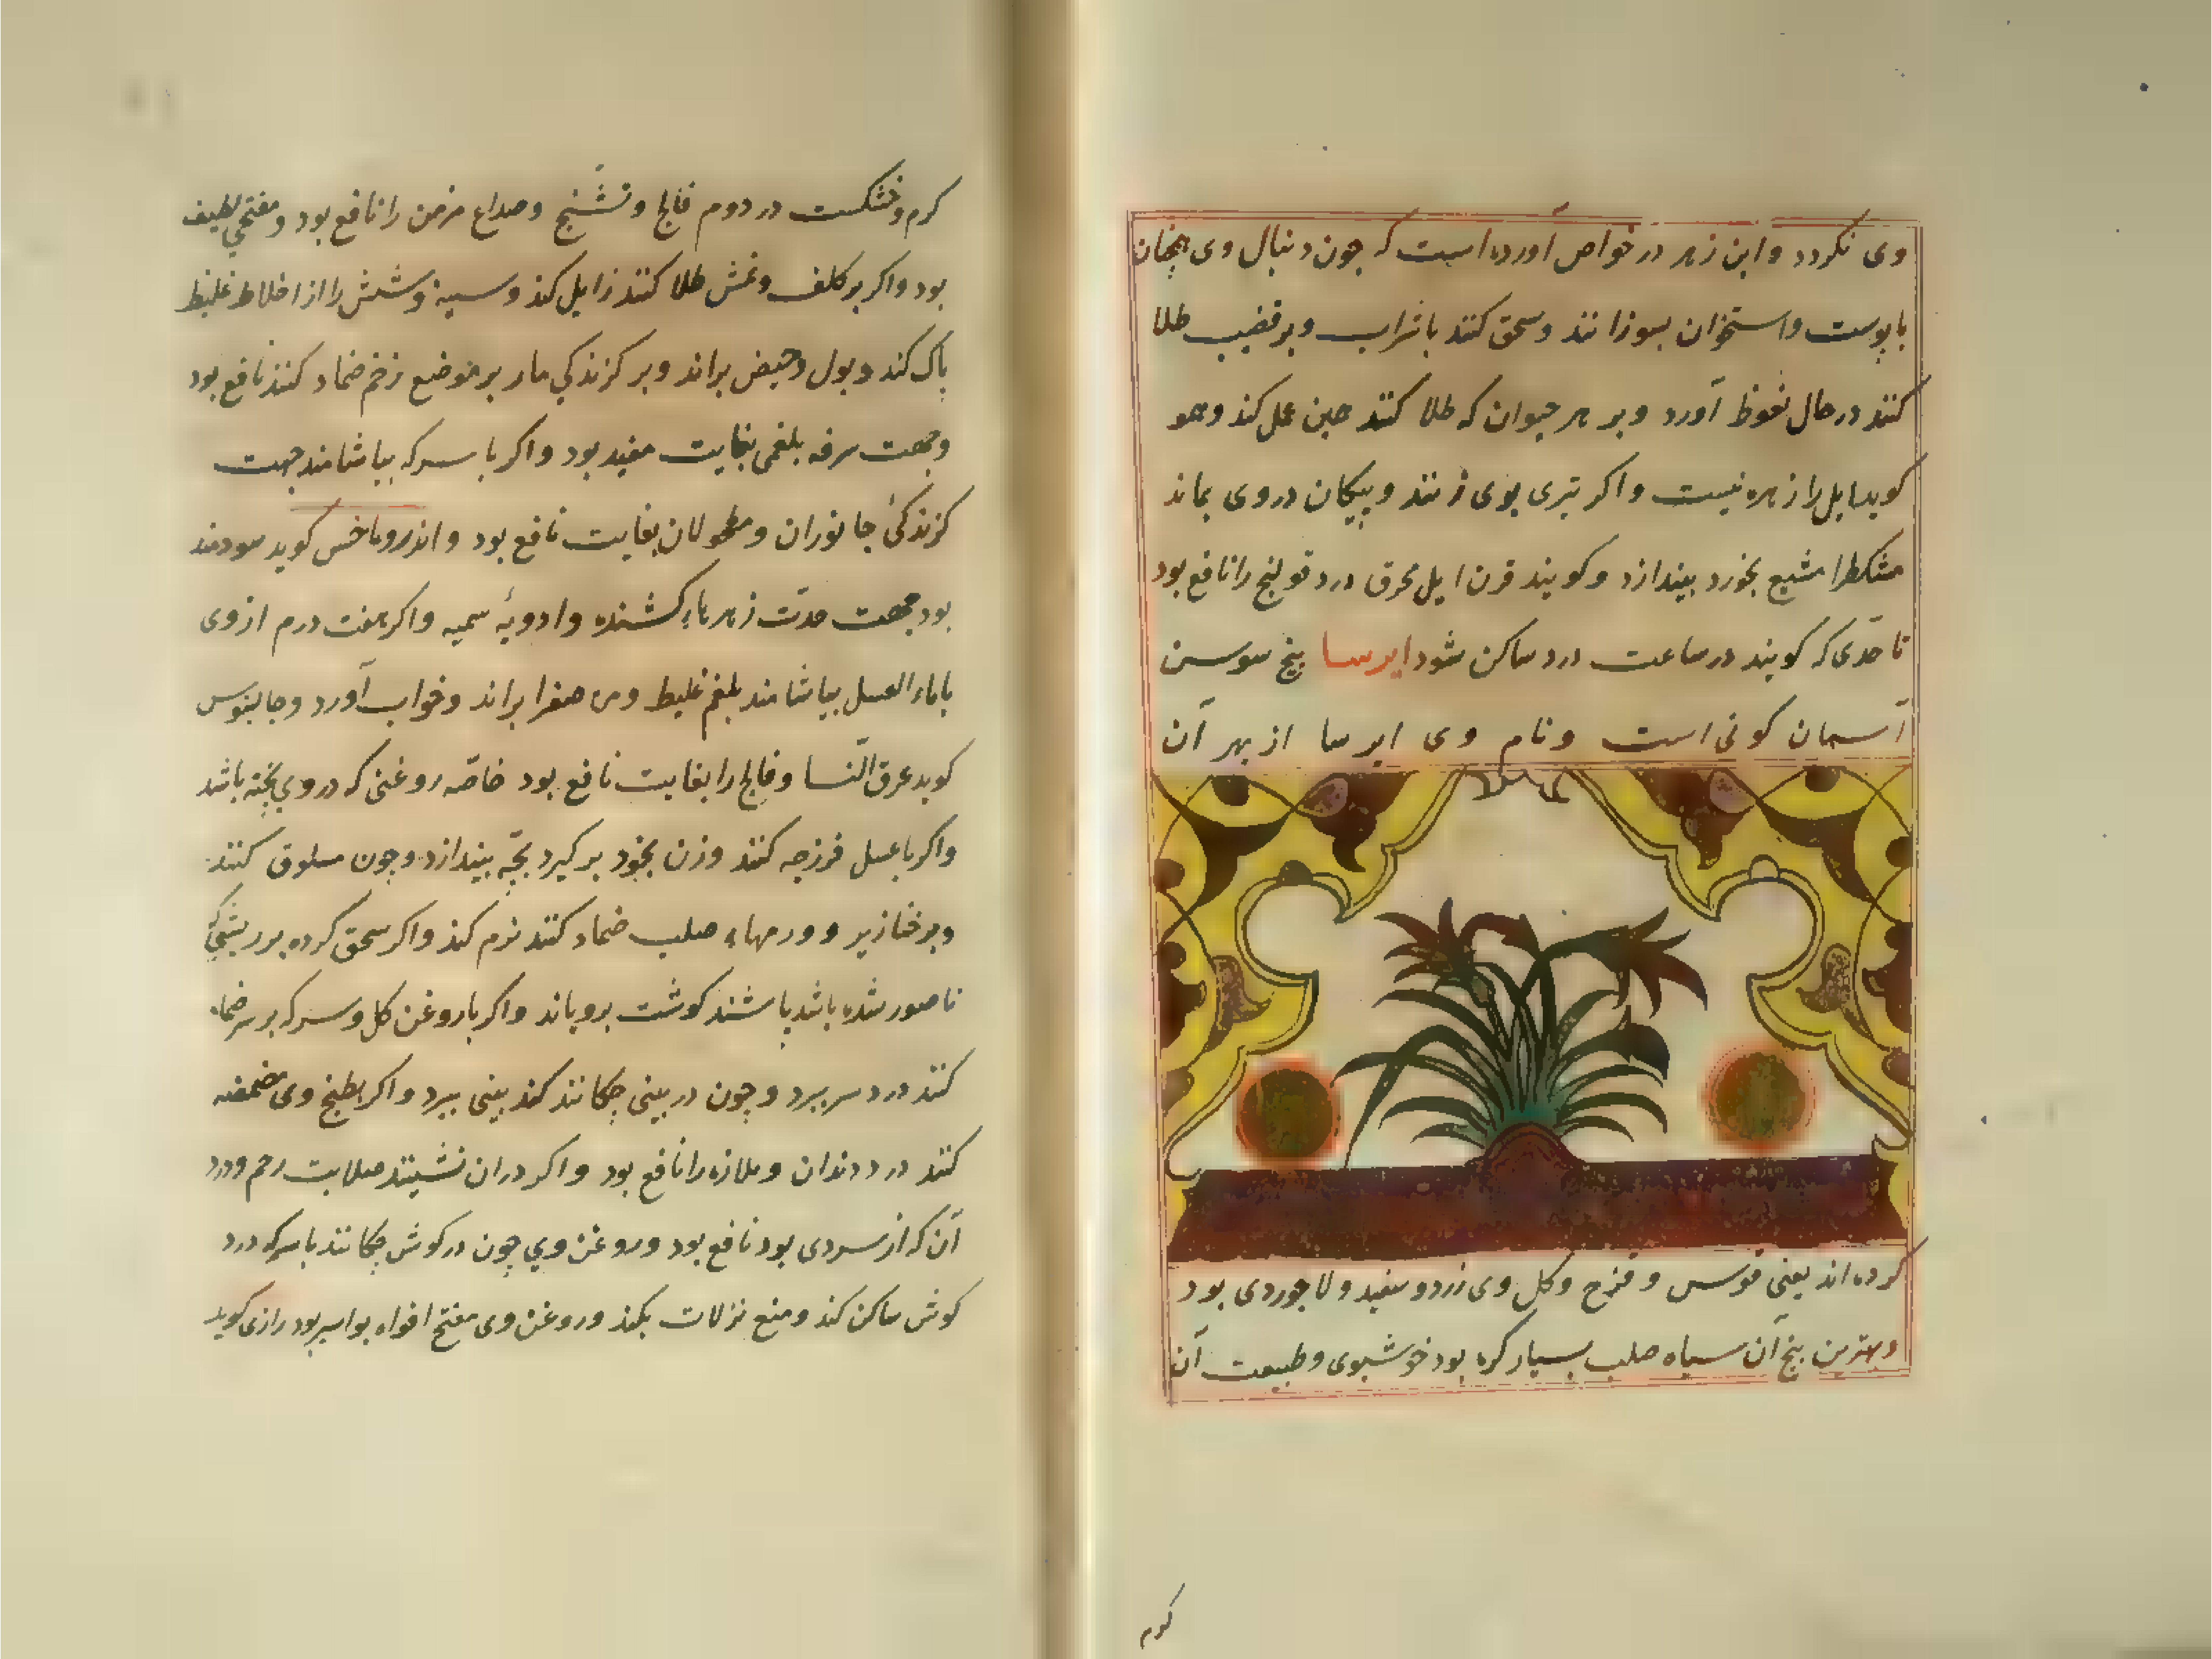 وی نکردد وابن زهر در خواص آورده است که جون دنبال وی همچنان
با پوست واستخوان بسوزانند وسحق کنند با شراب وبر قضیب طلا
کنند در حال نعوظ آورد وبر هر حیوان که طلا کنند همین عمل کند وهمو
کوید ایل را زهره نیست واکر تیری بوی زنند وپیکان در وی بماند
مشکطرامشیع بخورد بیندازد وکویند قرن ایل محرق درد قولنج را نافع بود
تا حدّی که کویند در ساعت درد ساکن شود ایرسا بیخ سوسن
آسمان کونی است ونام وی ایرسا از بهر آن
کرده اند یعنی قوس وقزح وکل وی زرد وسفید ولاجوردی بود
وبهترین بیخ آن سیاه صلب بسیار کره بود خوشبوی وطبیعت آن
کرم
کرم وخشکست در دوم فالج وتشنّج وصداع مزمن را نافع بود ومفتح لطیف
بود واکر بر کلف ونمش طلا کنند زایل کند وسینه وشش را از اخلاط غلیظ
پاک کند وبول وحیض براند وبر کزندکی مار بر موضع زخم ضماد کنند نافع بود
وجهت سرفه بلغمی بغایت مفید بود واکر با سرکه بیاشامند جهت
کزندکئ جانوران ومطحولان بغایت نافع بود واندروماخس کوید سودمند
بود جهت مدّت زهرهاء کشنده وادویهٔ سمیه واکر هفت درم از وی
با ماء العسل بیاشامند بلغم غلیظ ومره صفرا براند وخواب آورد وجالینوس
کوید عرق النّسا وفالج را بغایت نافع بود خاصّه روغنی که در وی پخته باشد
واکر با عسل فرزجه کنند وزن بخود بر کیرد بچّه بیندازد وچون مسلوق کنند
وبر خنازیر وورمهاء صلب ضماد کنند نرم کند واکر سحق کرده بر ریشی که
ناصور شده باشد پاشند کوشت برویاند واکر با روغن کل وسرکه بر سر ضماد
کنند درد سر ببرد وچون در بینی چکانند کند بینی ببرد واکر بطبخ وی مضمضه
کنند درد دندان وملازه را نافع بود واکر در ان نشینند صلابت رحم ودرد
آن که از سردی بود نافع بود وروغن وی چون در کوش چکانند با سرکه درد
کوش ساکن کند ومنع نزلات بکند وروغن وی مفتح افواه بواسیر بود رازی کوید